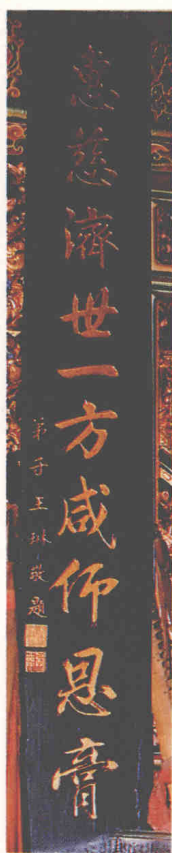 惠慈濟世一方咸仰恩膏
弟子王琳敬題